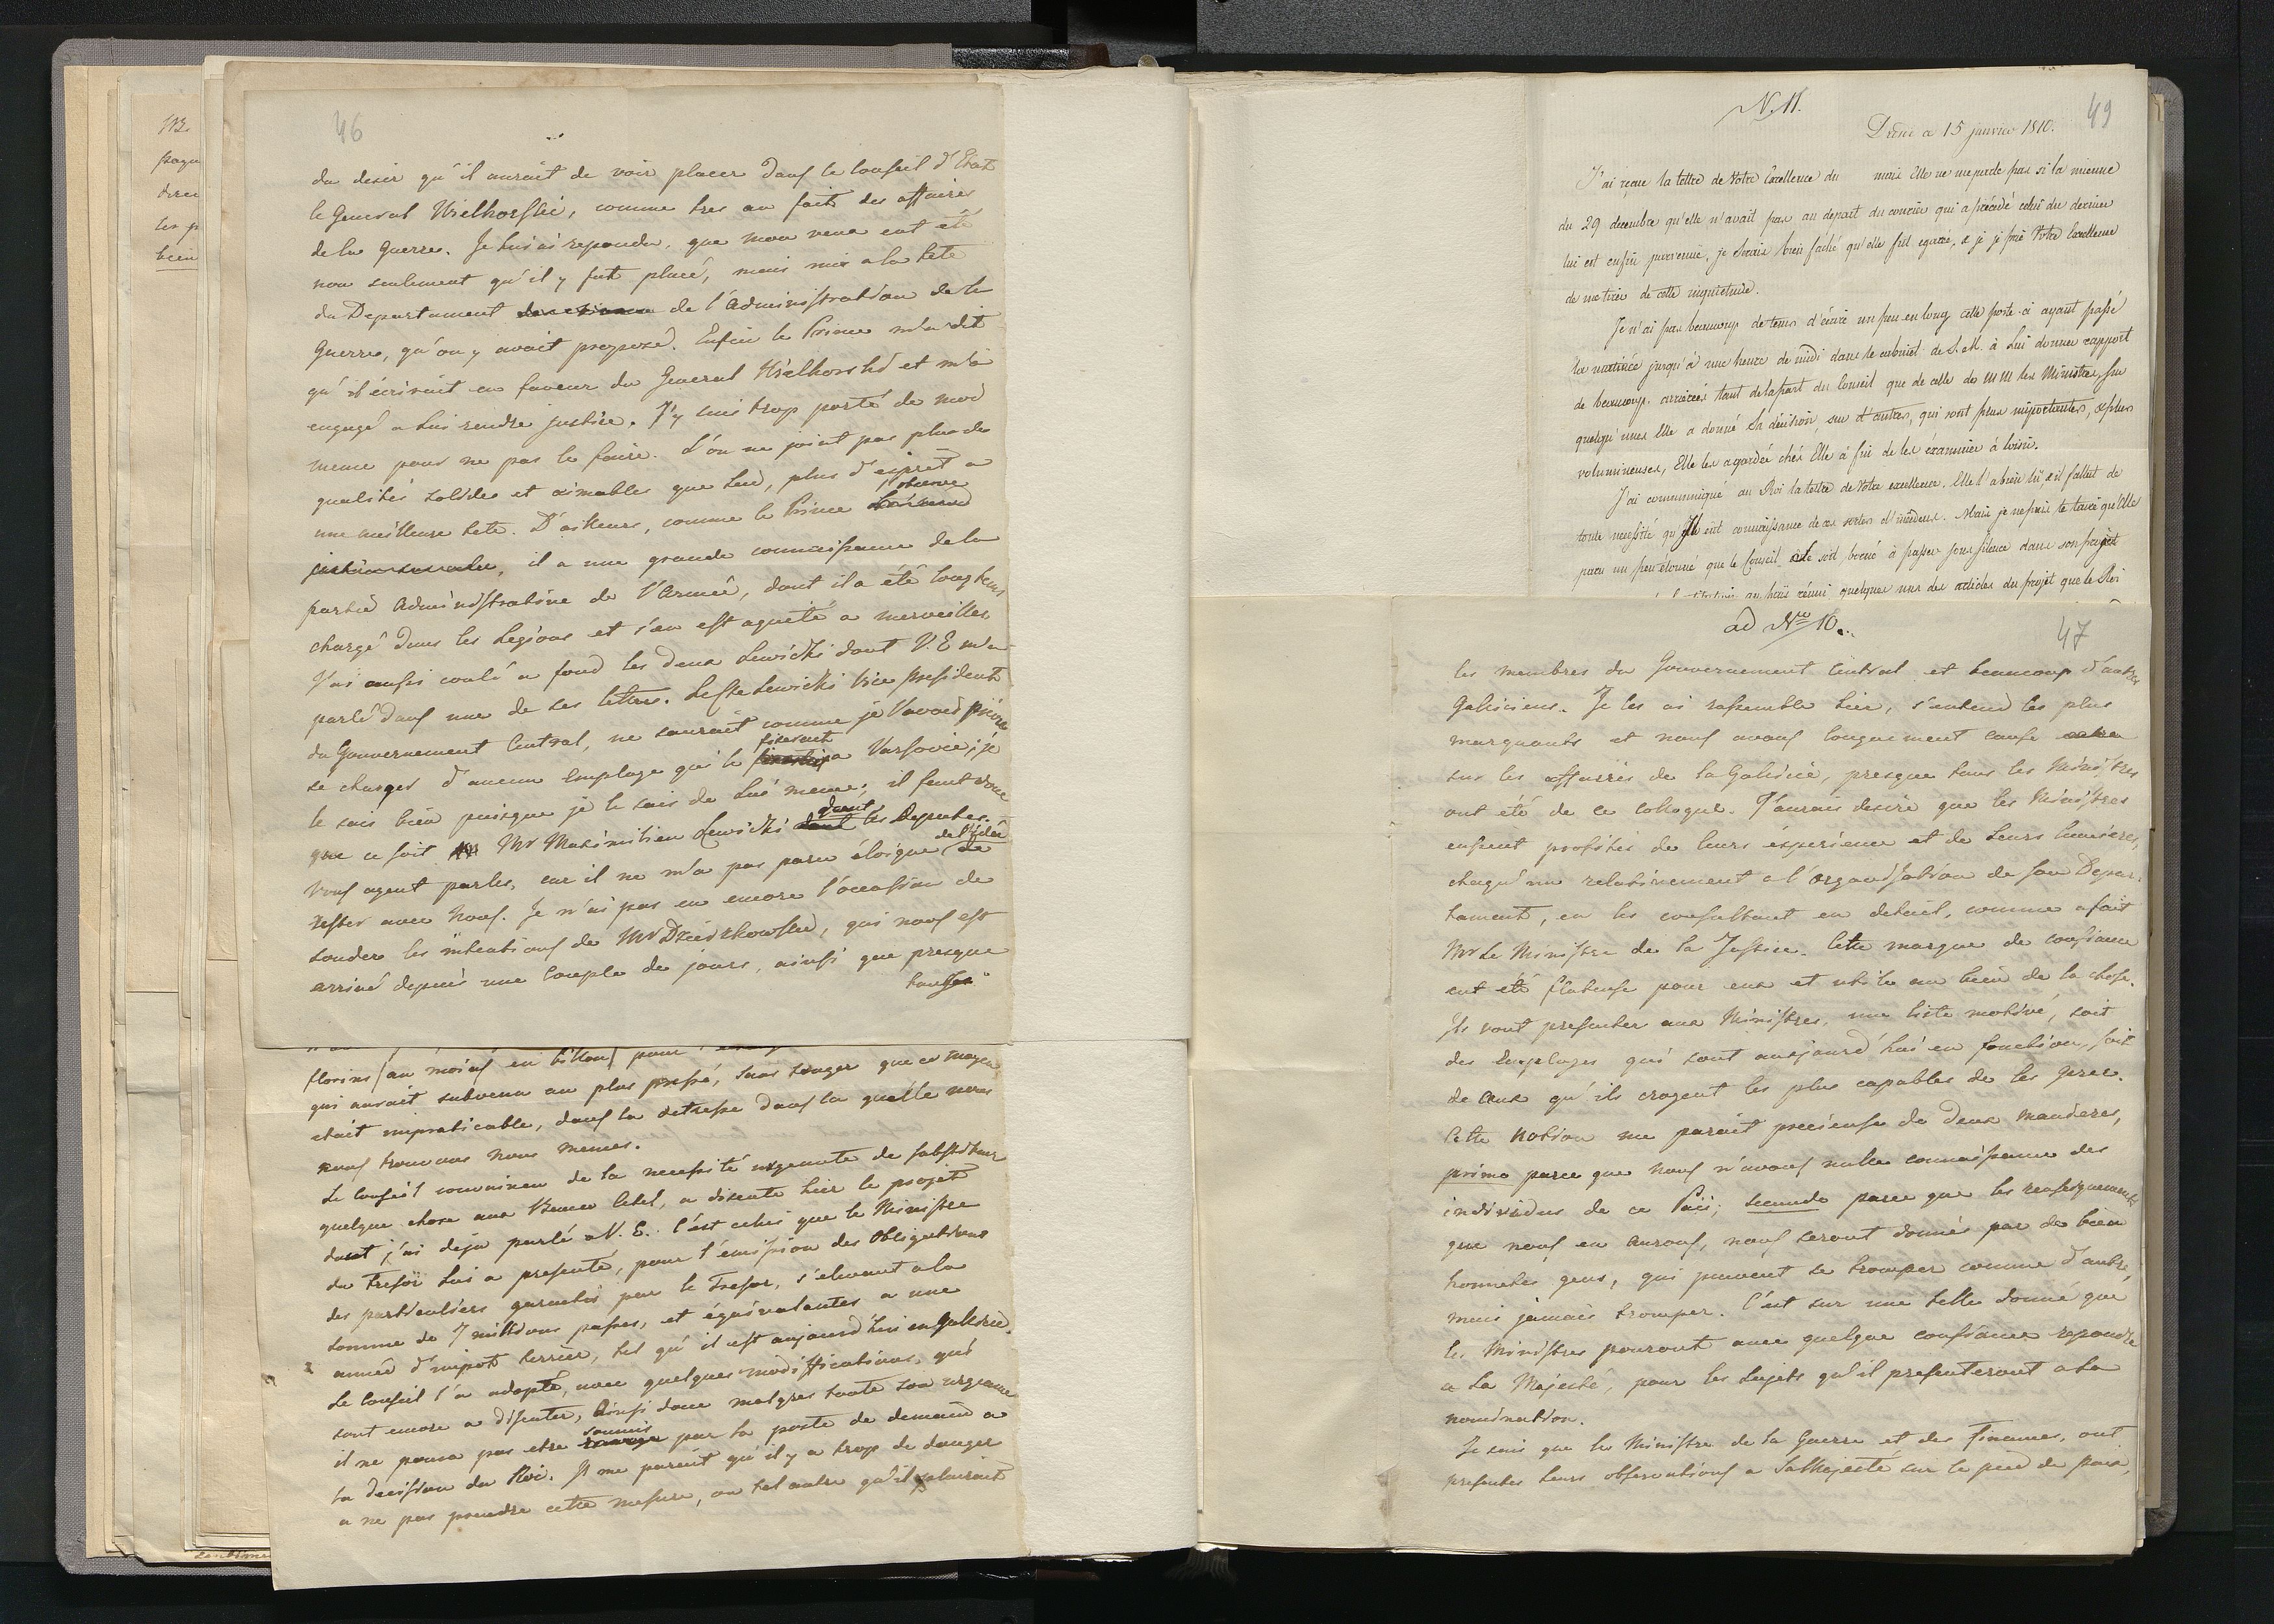 46
du desir qu'il aurait de voir placer dans le Conseil d'Etat
le General Wielhorski, comme tres au fait des affaires
de la Guerre. Je lui ai repondu, que mon vœu eut été
non seulement qu'il y fut placé, mais mis a la tete
du Departament de l'Administration de la
Guerre, qu'on y avait proposé. Enfin le Prince m'a dit
qu'il écrivait en faveur du General Wielhorski et m'a
engagé a lui rendre justice. J'y suis trop porté de moi
meme pour ne pas le faire. L'on ne joint pas plus de
qualités solides et aimables que lui, plus d'esprit a
une meilleure tete. D'ailleurs, comme le Prince observe
il a une grande connaissance de la
partie administrative de l'Armée, dont il a été longtems
chargé dans les Legions et s'en est aquité a merveilles
J'ai aussi coulé a fond les deux Lewicki dont V.E m'a
parlé dans une de ses lettres. Le Sr Lewicki Vice President
du Gouvernement Central, ne saurait comme je l'avais prévu
se charger d'aucun Employe qui le fixerait a Varsovie; je
le sais bien puisque je le sais de lui meme; il faut donc
que ce soit Mr Maximilien Lewicki dont les Deputés
nous ayent parlés, car il ne m'a pas paru éloigné de l'idée de
rester avec nous. Je n'ai pas eu encore l'occasion de
sonder les intentions de Mr Dzierzkowski, qui nous est
arrivé depuis une couple de jours, ainsi que presque
tous les
florins au moins en billons pour
qui aurait subvenu au plus pressé, sans songer que ce moyen
etait impraticable, dans la detresse dans la quelle nous
nous trouvons nous memes.
Le Conseil convaincu de la necessité urgente de substituer
quelque chose aux Banco Cetel, a discuté hier le projet
dont j'ai deja parlé a V. E. C'est celui que le Ministre
du Tresor lui a presenté, pour l'emission des Obligations
des particuliers garanties par le Tresor, s'elevant a la
somme de 7 millions passes, et équivalentes a une
année d'impot terrier, tel qu'il est aujourd'hui en Galicie.
Le Conseil l'a adopté, avec quelques modifications, qui
sont encore a discuter, Ainsi donc malgres toute son urgence
il ne poura pas etre soumis par la poste de demain a
la decision du Roi. Il me parait qu'il y a trop de danger
a ne pas prendre cette mesure, ou tel autre qu'il plairait
N. 11.
49
Dresde a 15 janvier 1810.
J'ai reçue la lettre de Votre Excellence du mois Elle ne me parle pas si la mienne
du 29 decembre qu'elle n'avait pas au depart du courrier qui a précédé celui du dernier
lui est enfin parvenue, je serais bien faché qu'elle fut egarée, & je prie Votre Excellence
de me tirer de cette inquietude.
Je n'ai pas beaucoup de tems d'écrire un peu en long cette poste-ci ayant passé
la matinée jusqu'à une heure de midi dans le cabinet de S.M. à Lui donner rapport
de beaucoup arriérées tant de la part du Conseil que de celle de MM les Ministres, sur
quelqu'unes Elle a donné Sa décision, sur d'autres, qui sont plus importantes, & plus
volumineuses, Elle les a gardée chés Elle à fin de les éxaminer à loisir.
J'ai communiqué au Roi la lettre de Votre excellence. Elle l'a bien lû, & il fallut de
toute necessité qu'Il eut connaissance de ces sortes d'incidens. Mais je ne puis le taire qu'Elle
paru un peu étonné que le Conseil se soit borné à passer sous silence dans son projet
réuni quelques uns des articles du projet que le Roi
ad Nro 10.
47
les membres du Gouvernement Central et beaucoup d'autres
Galiciens. Je les ai rassemblé hier, s'entend les plus
marquants et nous avons longuement causé
sur les affaires de la Galicie, presque tous les Ministres
ont été de ce colloque. J'aurais desiré que les Ministres
eussent profités de leurs expérience et de leurs lumieres,
chaqu'un relativement a l'organisation de son Depar-
tament, en les consultant en detail, comme a fait
Mr Le Ministre de la Justice. Cette marque de confiance
eut été flateuse pour eux et utile au bien de la chose.
Ils vont presenter aux Ministres, une liste motivé, soit
des Employes qui sont aujourd'hui en fonction, soit
de ceux qu'ils croyent les plus capables de les gerer.
Cette notion me parait precieuse de deux manieres,
primo parce que nous n'avons nulle connaissance des
individus de ce Païs; secundo parce que les renseignements
que nous en aurons, nous seront donnés par de bien
honnetes gens, qui peuvent se tromper comme d'autre,
mais jamais tromper. C'est sur une telle donné que
les Ministres pouront avec quelque confiance repondre
a Sa Majesté, pour les sujets qu'il presenteront a la
nomination.
Je sais que les Ministre de la Guerre et des Finances, ont
presentes leurs observations a Sa Majesté sur le pied de paix,